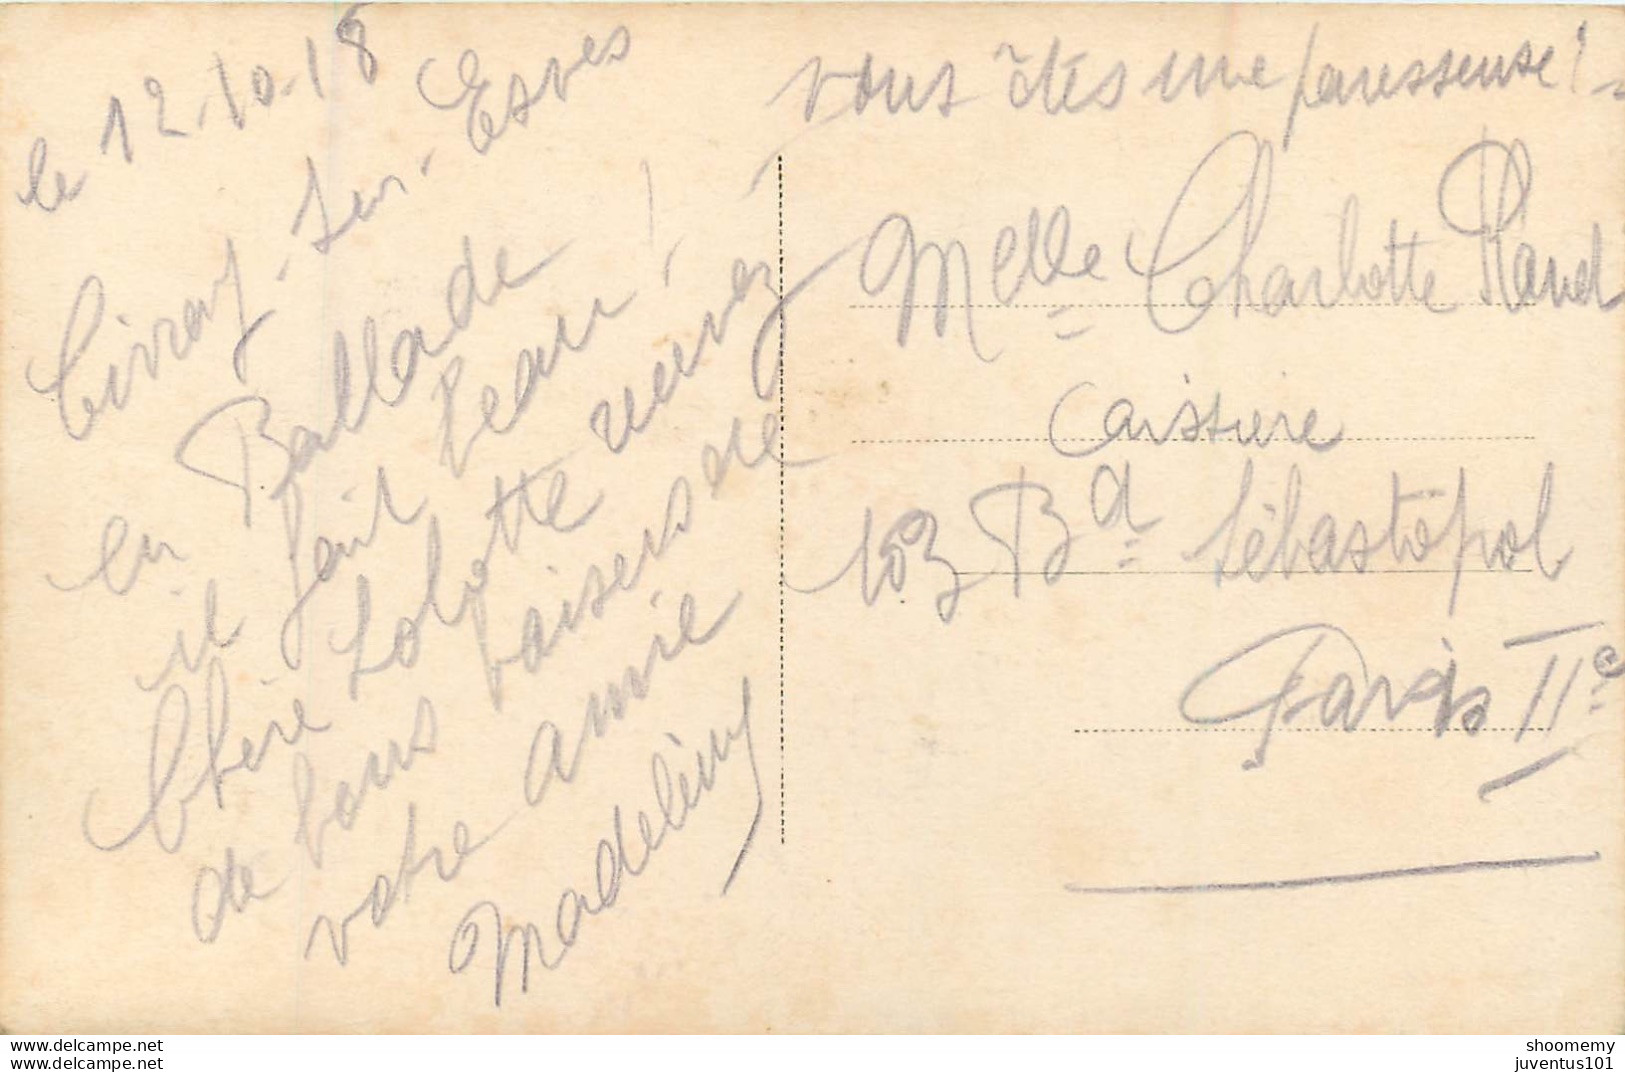 le 12-10-18
Civray-Sur-Esves
en Ballade
il fait beau!
Chère Lolotte recevez
de bons baisers de
votre amie
Madeleine
vous êtes une paresseuse!
Melle Charlotte
Caissiere
103 Bd Sébastopol
Paris IIe
shoomemy
juventus101